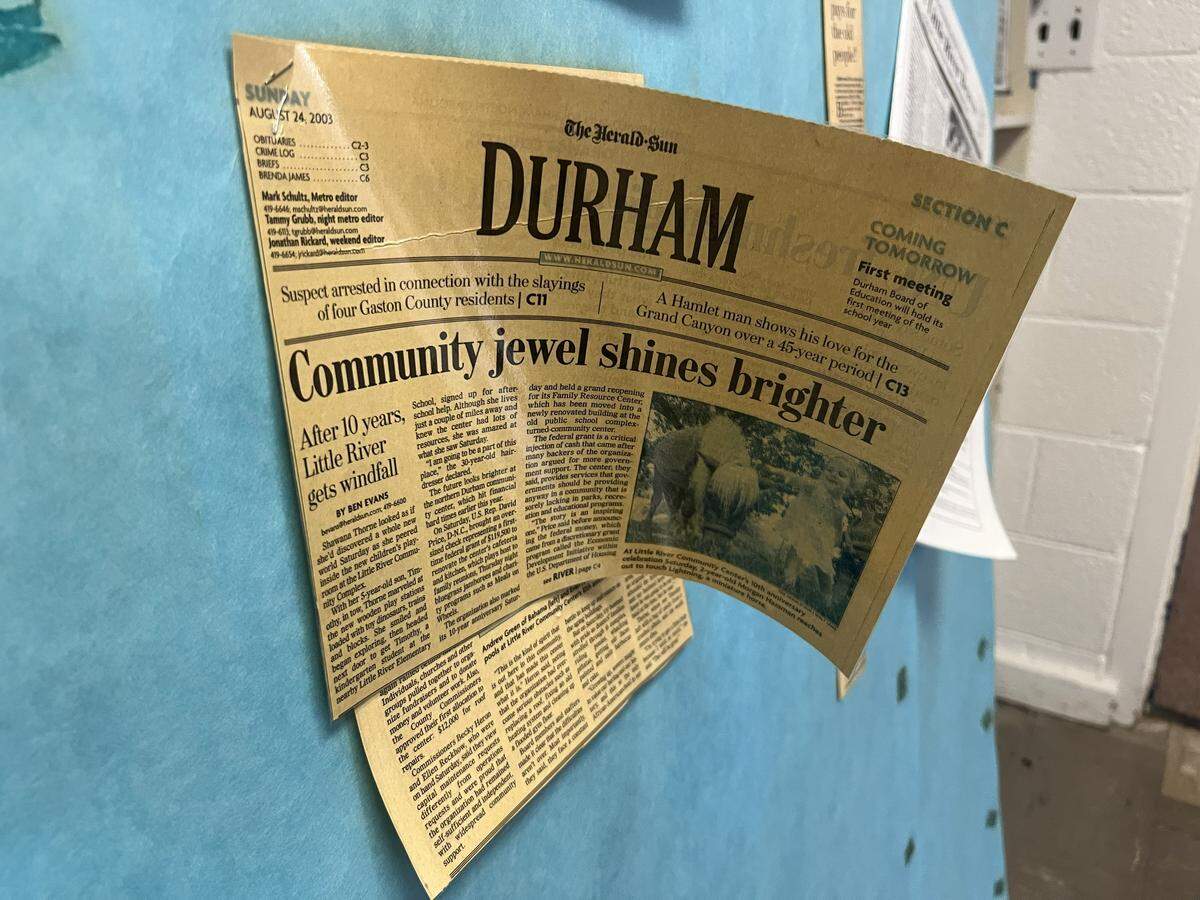 SUNDAY
AUGUST 24, 2003
OBITUARIES ............ C2-3
CRIME LOG ............ C3
BRIEFS ............ C3
BRENDA JAMES ............ C6
Mark Schultz, Metro editor
419-6646; mschultz@heraldsun.com
Tammy Grubb, night metro editor
419-6113; tgrubb@heraldsun.com
Jonathan Rickard, weekend editor
419-6654; jrickard@heraldsun.com
The Herald-Sun
DURHAM
WWW.HERALDSUN.COM
SECTION C
COMING
TOMORROW
First meeting
Durham Board of
Education will hold its
first meeting of the
school year
Suspect arrested in connection with the slayings
of four Gaston County residents | C11
A Hamlet man shows his love for the
Grand Canyon over a 45-year period | C13
Community jewel shines brighter
After 10 years,
Little River
gets windfall
BY BEN EVANS
bevans@heraldsun.com; 419-6600
Shawana Thorne looked as if
she'd discovered a whole new
world Saturday as she peered
inside the new children's play-
room at the Little River Commu-
nity Complex.
With her 5-year-old son, Tim-
othy, in tow, Thorne marveled at
the new wooden play stations
loaded with toy dinosaurs, trains
and blocks. She smiled and
began exploring, then headed
next door to get Timothy, a
kindergarten student at the
nearby Little River Elementary
School, signed up for after-
school help. Although she lives
just a couple of miles away and
knew the center had lots of
resources, she was amazed at
what she saw Saturday.
"I am going to be a part of this
place," the 30-year-old hair-
dresser declared.
The future looks brighter at
the northern Durham communi-
ty center, which hit financial
hard times earlier this year.
On Saturday, U.S. Rep. David
Price, D-N.C., brought an over-
sized check representing a first-
time federal grant of $119,500 to
renovate the center's cafeteria
and kitchen, which plays host to
family reunions, Thursday night
bluegrass hoedowns and chari-
ty programs such as Meals on
Wheels.
The organization also marked
its 10-year anniversary Satur-
day and held a grand reopening
for its Family Resource Center,
which has been moved into a
newly renovated building at the
old public school complex-
turned-community center.
The federal grant is a critical
injection of cash that came after
many backers of the organiza-
tion argued for more govern-
ment support. The center, they
said, provides services that gov-
ernments should be providing
anyway in a community that is
sorely lacking in parks, recre-
ation and educational programs.
"The story is an inspiring
one," Price said before announc-
ing the federal money, which
came from a discretionary grant
program called the Economic
Development Initiative within
the U.S. Department of Housing
see RIVER | page C4
At Little River Community Center's 10th anniversary
celebration Saturday, 2-year-old Morgan Hamman reaches
out to touch Lightning, a miniature horse.
again raised
Individuals, churches and other
groups pulled together to orga-
nize fundraisers and to donate
money and volunteer work. Also,
the County Commissioners
approved their first allocation to
the center: $12,000 for roof
repairs.
Commissioners Becky Heron
and Ellen Reckhow, who were
on hand Saturday, said they view
capital maintenance requests
differently from operations
requests and were proud that
the organization had remained
self-sufficient and independent,
with widespread community
support.
Andrew Green of Bahama
pools at Little River Community
"This is the kind of spirit that
pays for
the old
people!